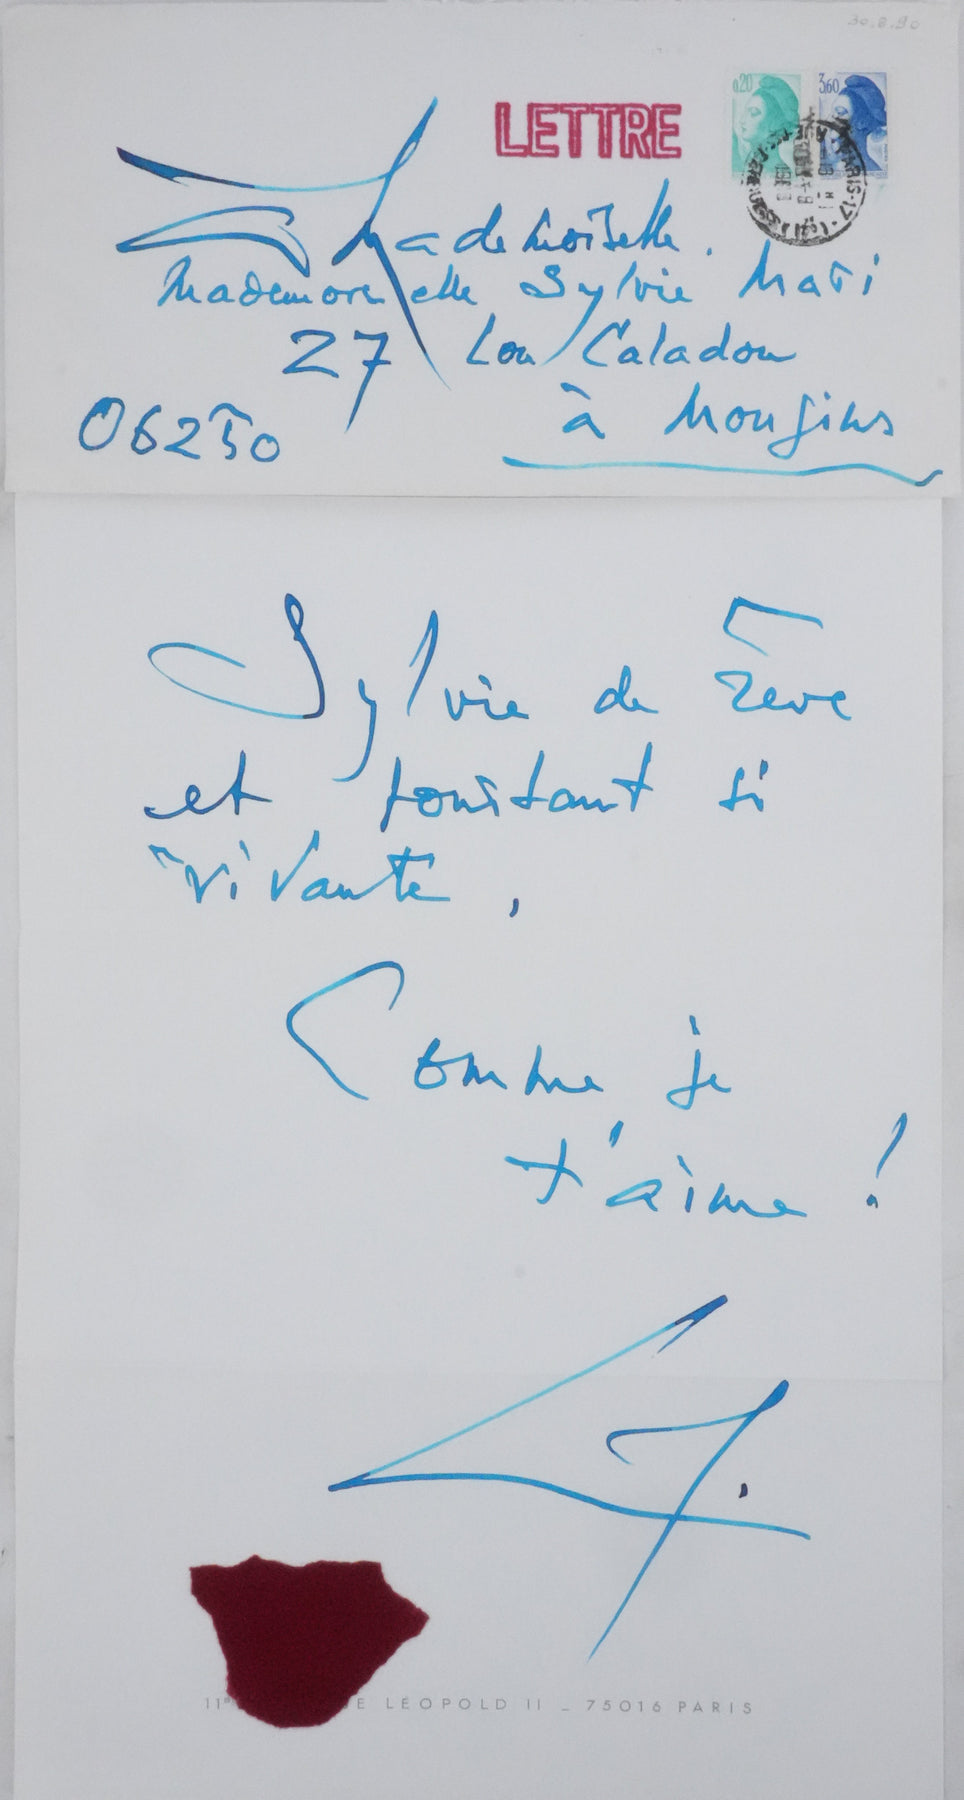 30.8.90
LETTRE
0,20 3,60
Mademoiselle.
Mademoiselle Sylvie Mari
27 Lou Caladou
06250 à Mougins
Sylvie de rêve
et pourtant si
vivante,
Comme je
t'aime !
11 E LÉOPOLD II _ 75016 PARIS